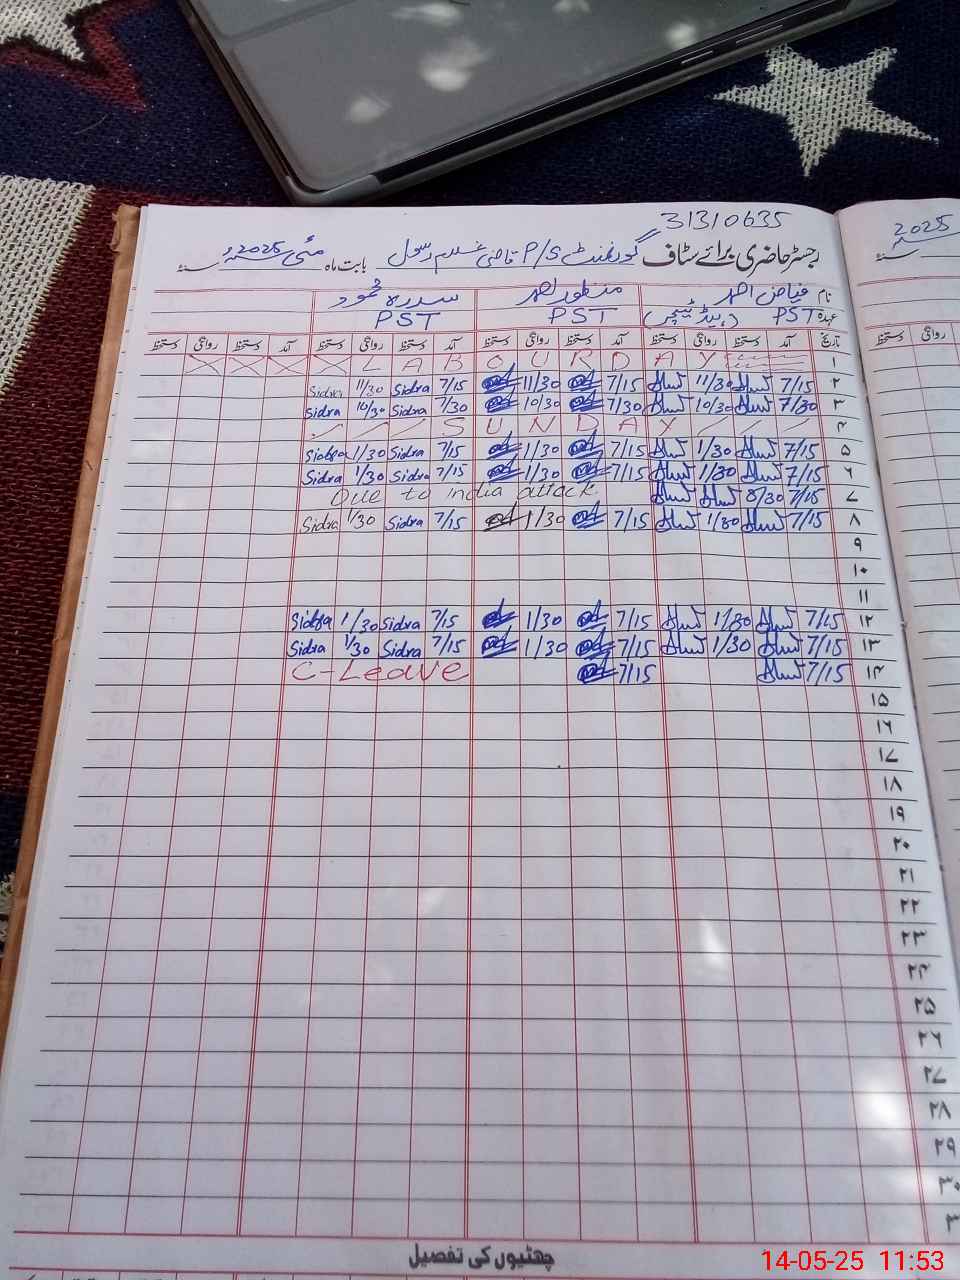 31310635
رجسٹر حاضری برائے سٹاف گورنمنٹ P/S قاضی غلام رسول بابت ماہ مئی 2025ء سنہ
2025 سنہ
نام فیاض احمد منظور احمد سدرہ محمود
عہدہ PST (ہیڈ ٹیچر) PST PST
تاریخ آمد دستخط روانگی دستخط آمد دستخط روانگی دستخط آمد دستخط روانگی دستخط آمد دستخط روانگی دستخط
روانگی دستخط
۱ LABOURDAY
۲ 7/15 11/30 7/15 11/30 7/15 Sidra 11/30 Sidra
۳ 7/30 10/30 7/30 10/30 7/30 Sidra 10/30 Sidra
۴ SUNDAY
۵ 7/15 1/30 7/15 1/30 7/15 Sidra 1/30 Sidra
۶ 7/15 1/30 7/15 1/30 7/15 Sidra 1/30 Sidra
۷ 7/15 8/30 Due to india attack
۸ 7/15 1/30 7/15 1/30 7/15 Sidra 1/30 Sidra
۹
۱۰
۱۱
۱۲ 7/15 1/30 7/15 1/30 7/15 Sidra 1/30 Sidra
۱۳ 7/15 1/30 7/15 1/30 7/15 Sidra 1/30 Sidra
۱۴ 7/15 7/15 C-Leave
۱۵
۱۶
۱۷
۱۸
۱۹
۲۰
۲۱
۲۲
۲۳
۲۴
۲۵
۲۶
۲۷
۲۸
۲۹
۳۰
۳
چھٹیوں کی تفصیل
14-05-25 11:53